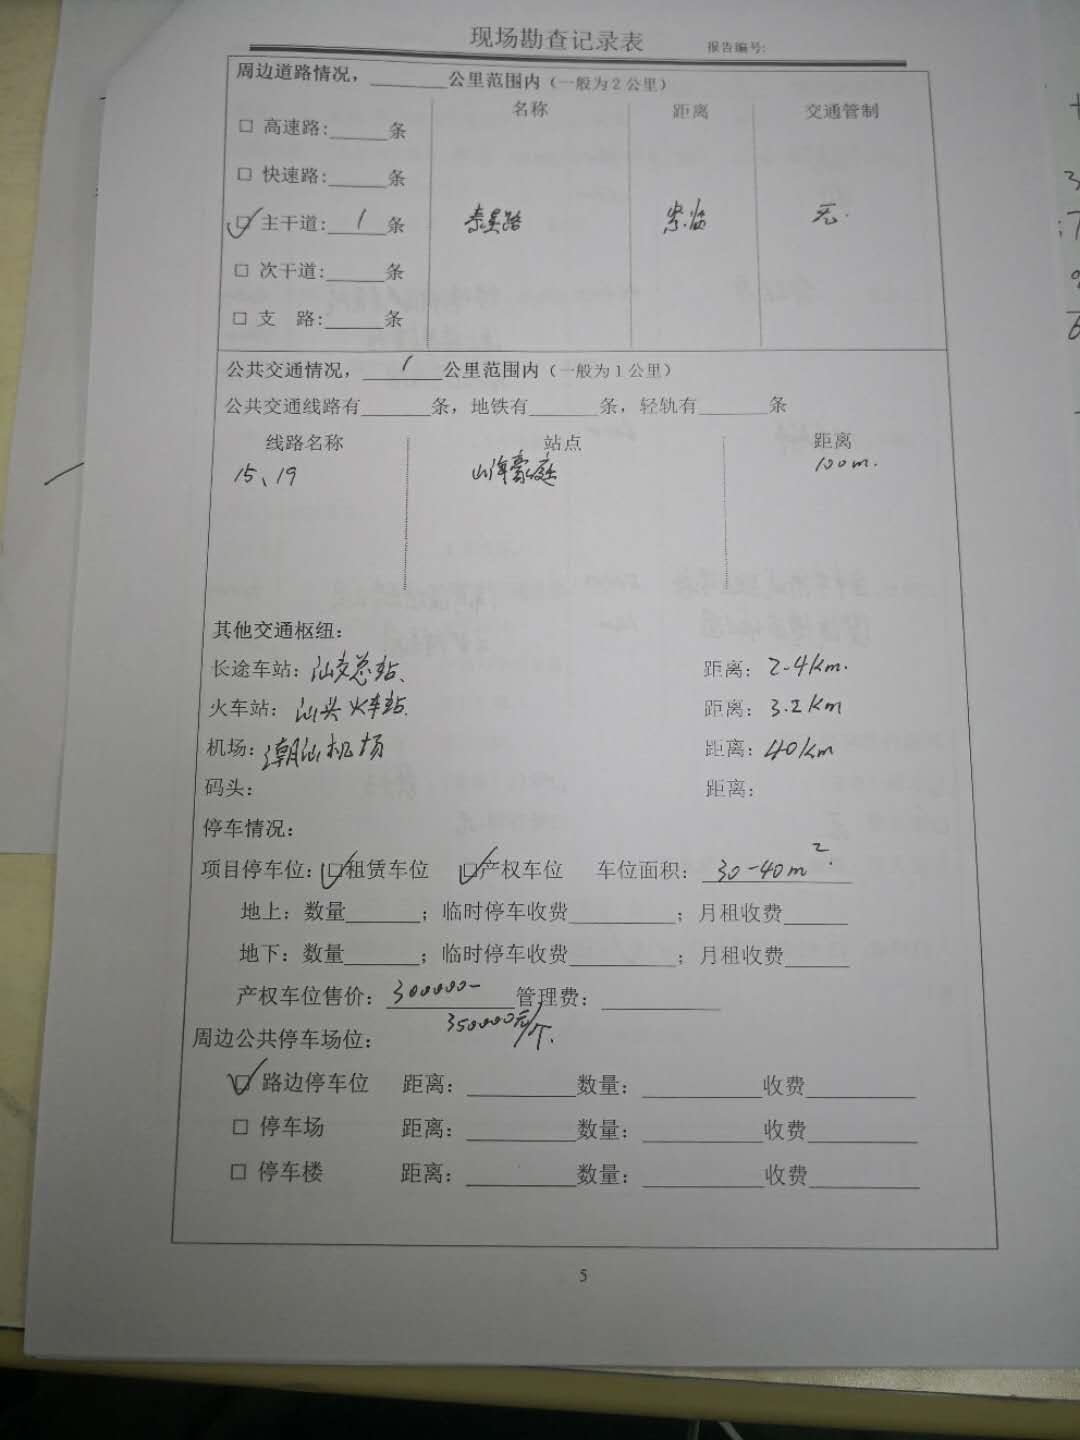 现场勘查记录表 报告编号:
周边道路情况，________公里范围内（一般为2公里）
名称 距离 交通管制
□ 高速路:______条
□ 快速路:______条
☑ 主干道: 1 条 泰星路 紧临 无.
□ 次干道:______条
□ 支　路:______条
公共交通情况， 1 公里范围内（一般为1公里）
公共交通线路有______条，地铁有______条，轻轨有______条
线路名称 站点 距离
15、19 山海豪庭 100m.
其他交通枢纽：
长途车站：汕汽总站、 距离：2.4km.
火车站：汕头火车站. 距离：3.2km
机场：潮汕机场 距离：40km
码头： 距离：
停车情况：
项目停车位：☑租赁车位 ☑产权车位 车位面积：30-40m².
地上：数量______；临时停车收费________；月租收费_____
地下：数量______；临时停车收费________；月租收费_____
产权车位售价：300000- 管理费：________
350000元/个.
周边公共停车场位：
☑ 路边停车位 距离：________数量：________收费________
□ 停车场 距离：________数量：________收费________
□ 停车楼 距离：________数量：________收费________
5